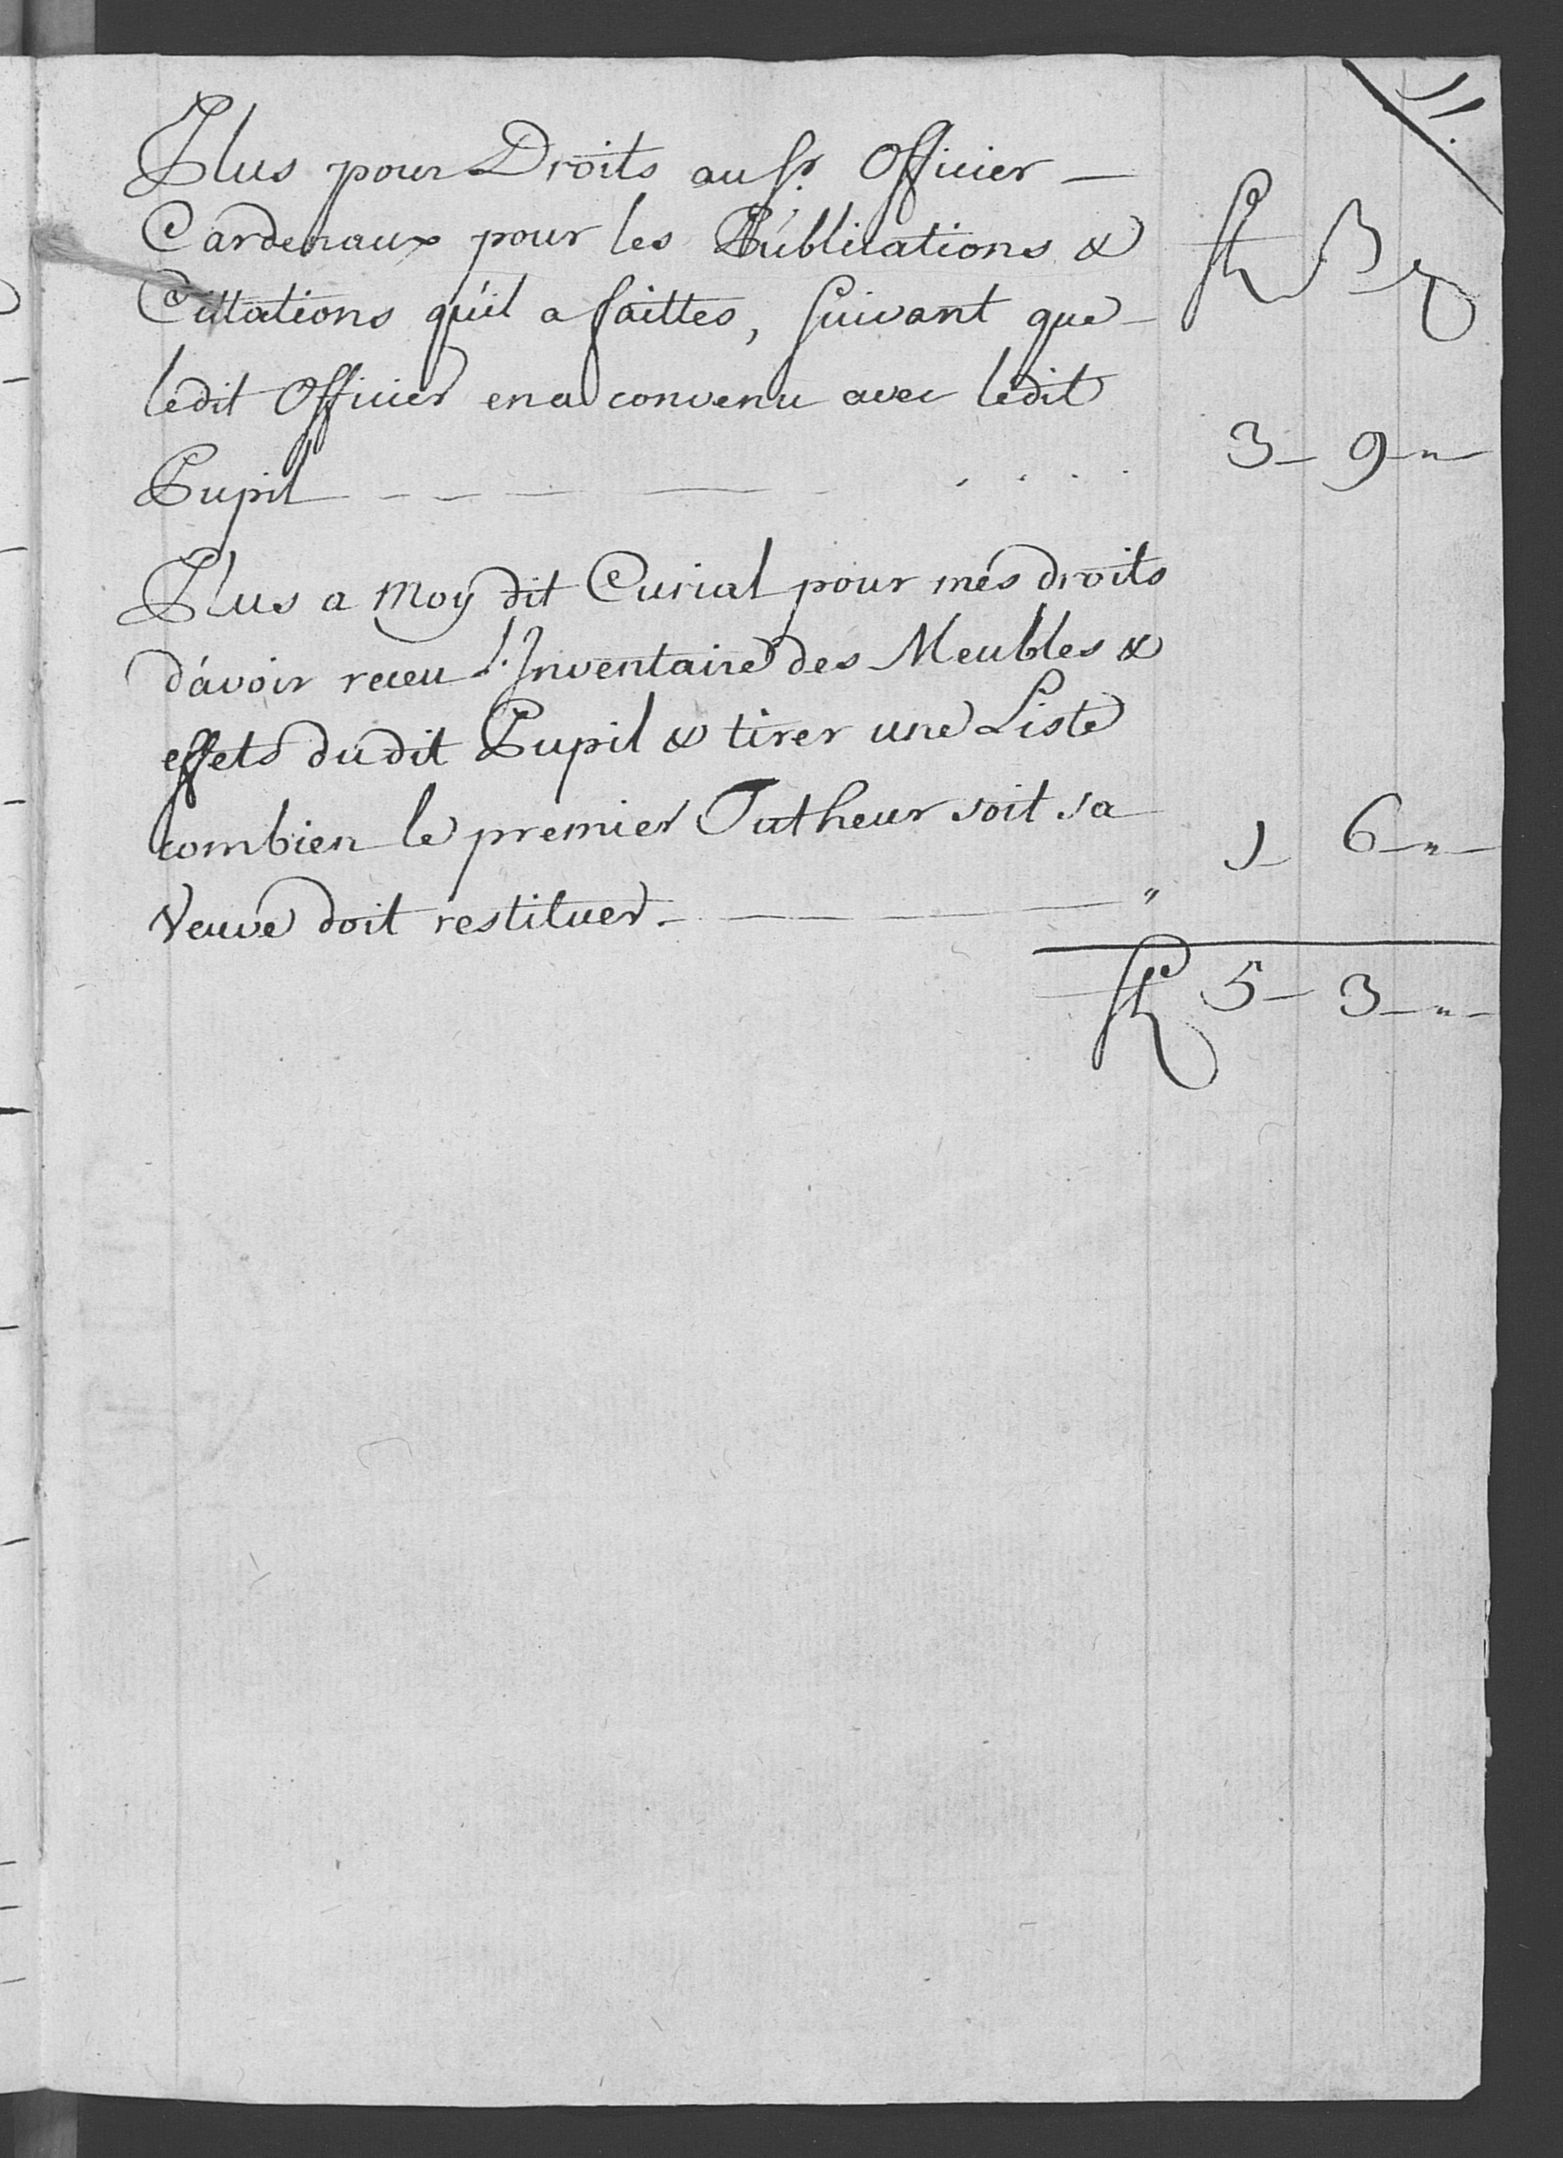 11.
Plus pour Droits au Sr. Officier —
Cardenaux pour les Publications &
Cittations qu'il a faittes, Suivant que
ledit Officier en a convenu avec ledit
Pupil - - - - - - . . . . 3 - 9 - "
Plus a Moy dit Curial pour mes droits
d'avoir receu l'Inventaire des Meubles &
effets du dit Pupil & tirer une Liste
combien le premier Tutheur soit sa
Veuve doit restituer. - - - - " 1 - 6 - "
5 - 3 - "